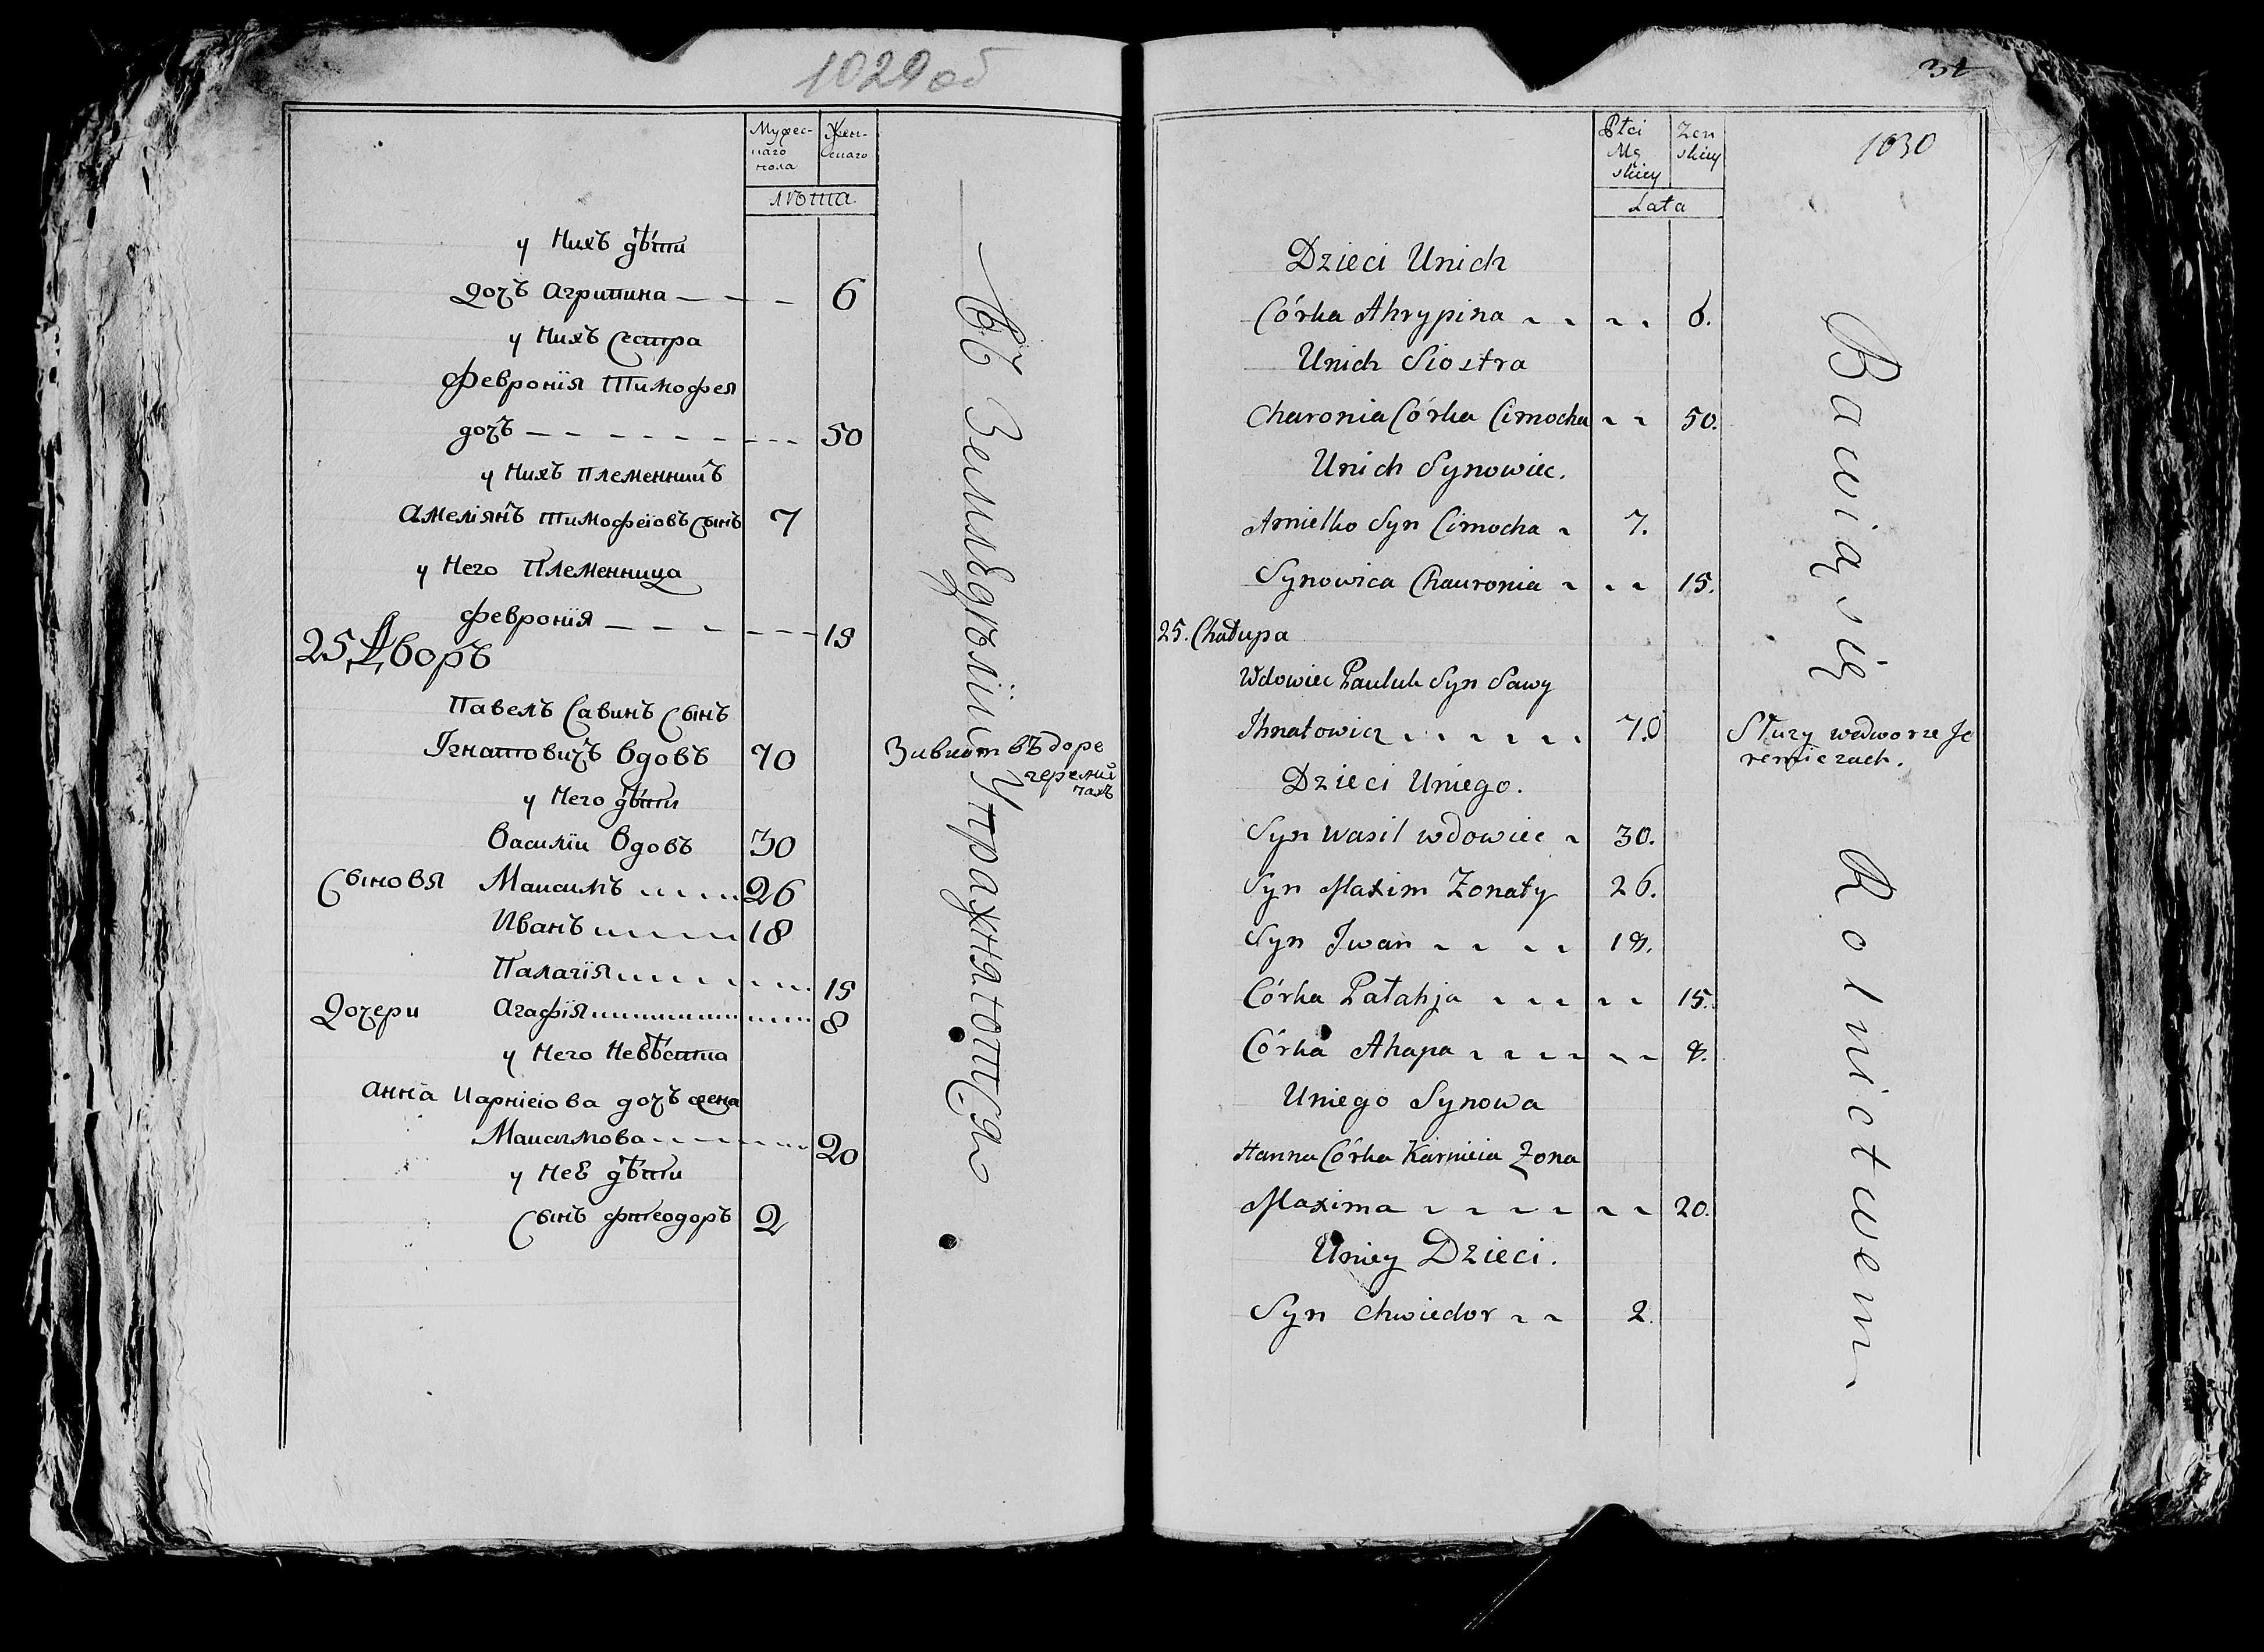 1029 об
Мужес-
каго
пола
Жен-
скаго
лѣта.
у Нихъ дѣти
Дочъ Агрипина — — — 6
у Нихъ Сестра
Феврония Тимофея
дочъ — — — — — — — — — 50
у Нихъ Племенникъ
Амеліянъ Тимофеіовъ Сынъ 7
у Него Племенница
Феврония — — — — — — — 15
25 Дворъ
Павелъ Савинъ Сынъ
Игнатовичъ Вдовъ 70
у Него дѣти
Василіи Вдовъ 30
Сыновя Максимъ 26
Иванъ 18
Палагія 15
Дочери Агафія 8
у Него Невѣстка
Анна Карніеіова дочъ жена
Максимова 20
у Неѣ дѣти
Сынъ Фтеодоръ 2
Въ Земледѣліи Упражнятотся
въ дворе
31
1030
Płci
Mę
skiey
Zen
skiey
Lata
Dzieci Unich
Córka Ahrypina 6.
Unich Siostra
Chauronia Córka Cimocha 50.
Unich Synowiec.
Amielko Syn Cimocha 7.
Synowica Chauronia 15.
25. Chałupa
Wdowiec Pauluk Syn Sawy
Ihnatowicz 70
Dzieci Uniego.
Syn Wasil wdowiec 30.
Syn Maxim Zonaty 26.
Syn Iwan 18.
Córka Pałahja 15.
Córka Ahapa 8.
Uniego Synowa
Hanna Córka Karnieia Zona
Maxima 20.
Uniey Dzieci.
Syn Chwiedor 2.
Bawią się Rolnictwem
Słuzy wedworze Je
remiczach.